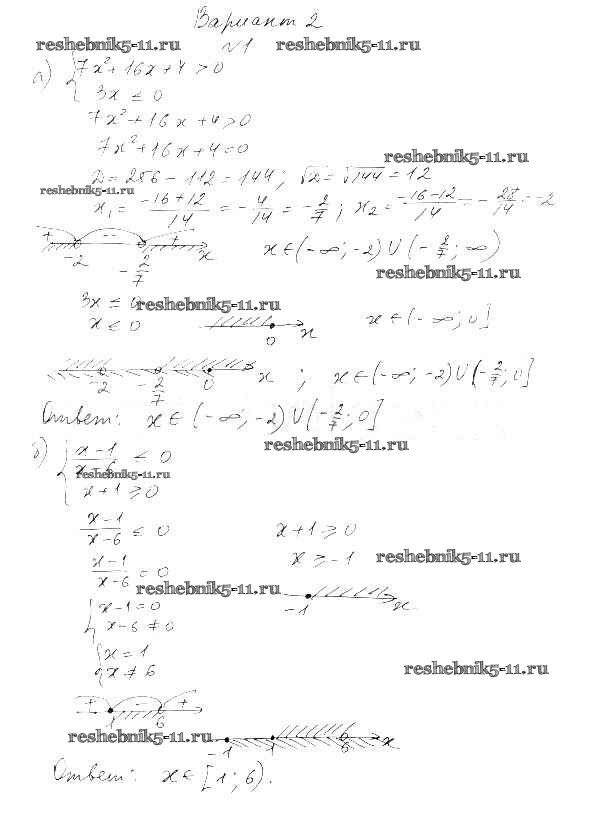 Вариант 2
reshebnik5-11.ru №1 reshebnik5-11.ru
а) { 7x²+16x+4>0
3x ≤ 0
7x²+16x+4>0
7x²+16x+4=0
reshebnik5-11.ru
D=256-112=144; √D=√144=12
reshebnik5-11.ru
x₁=(-16+12)/14=-4/14=-2/7; x₂=(-16-12)/14=-28/14=-2
+ - +
-2 -2/7 x x∈(-∞;-2)∪(-2/7;∞)
reshebnik5-11.ru
3x ≤ 0 reshebnik5-11.ru
x ≤ 0 0 x x∈(-∞;0]
-2 -2/7 0 x ; x∈(-∞;-2)∪(-2/7;0]
Ответ: x∈(-∞;-2)∪(-2/7;0]
reshebnik5-11.ru
б) { (x-1)/(x-6) ≤ 0
reshebnik5-11.ru
x+1 ≥ 0
(x-1)/(x-6) ≤ 0 x+1 ≥ 0
x ≥ -1 reshebnik5-11.ru
(x-1)/(x-6) = 0
reshebnik5-11.ru
-1 x
{ x-1=0
x-6≠0
{ x=1
x≠6 reshebnik5-11.ru
+ - +
1 6
reshebnik5-11.ru -1 1 6 x
Ответ: x∈[1;6).